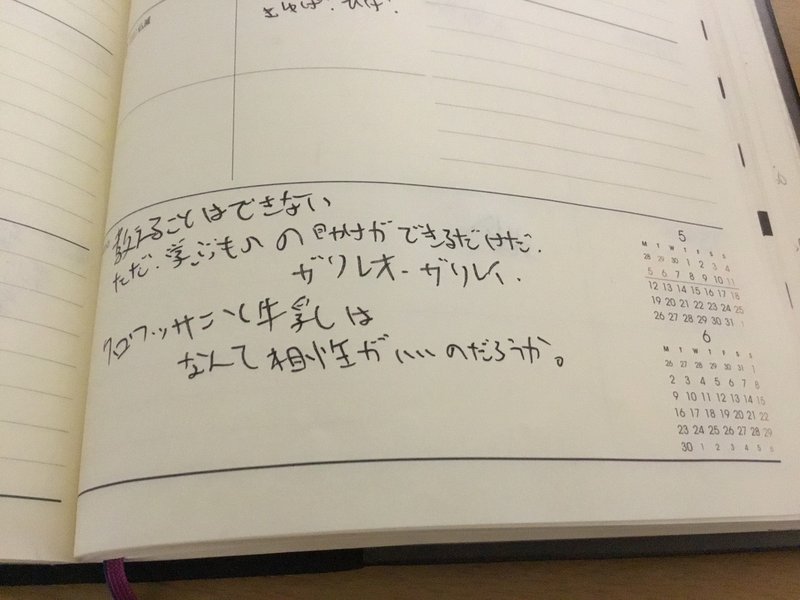 教えることはできない
ただ.学ぶもの の ができるだけだ.
ガリレオ・ガリレイ.
クロワッサンと牛乳は
なんて相性がいいのだろうか。
5
M T W T F S S
28 29 30 1 2 3 4
5 6 7 8 9 10 11
12 13 14 15 16 17 18
19 20 21 22 23 24 25
26 27 28 29 30 31 1
6
M T W T F S S
26 27 28 29 30 31 1
2 3 4 5 6 7 8
9 10 11 12 13 14 15
16 17 18 19 20 21 22
23 24 25 26 27 28 29
30 1 2 3 4 5 6